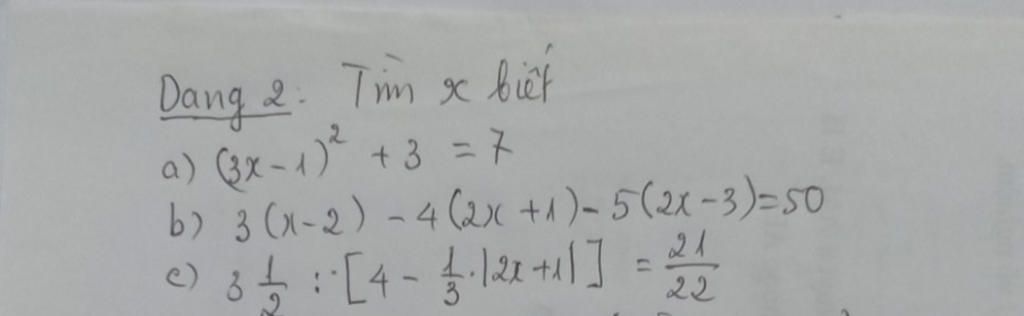 Dang 2: Tìm x biết
a) (3x-1)² + 3 = 7
b) 3(x-2) - 4(2x+1) - 5(2x-3) = 50
c) 3 1/2 : [4 - 1/3 . |2x+1|] = 21/22